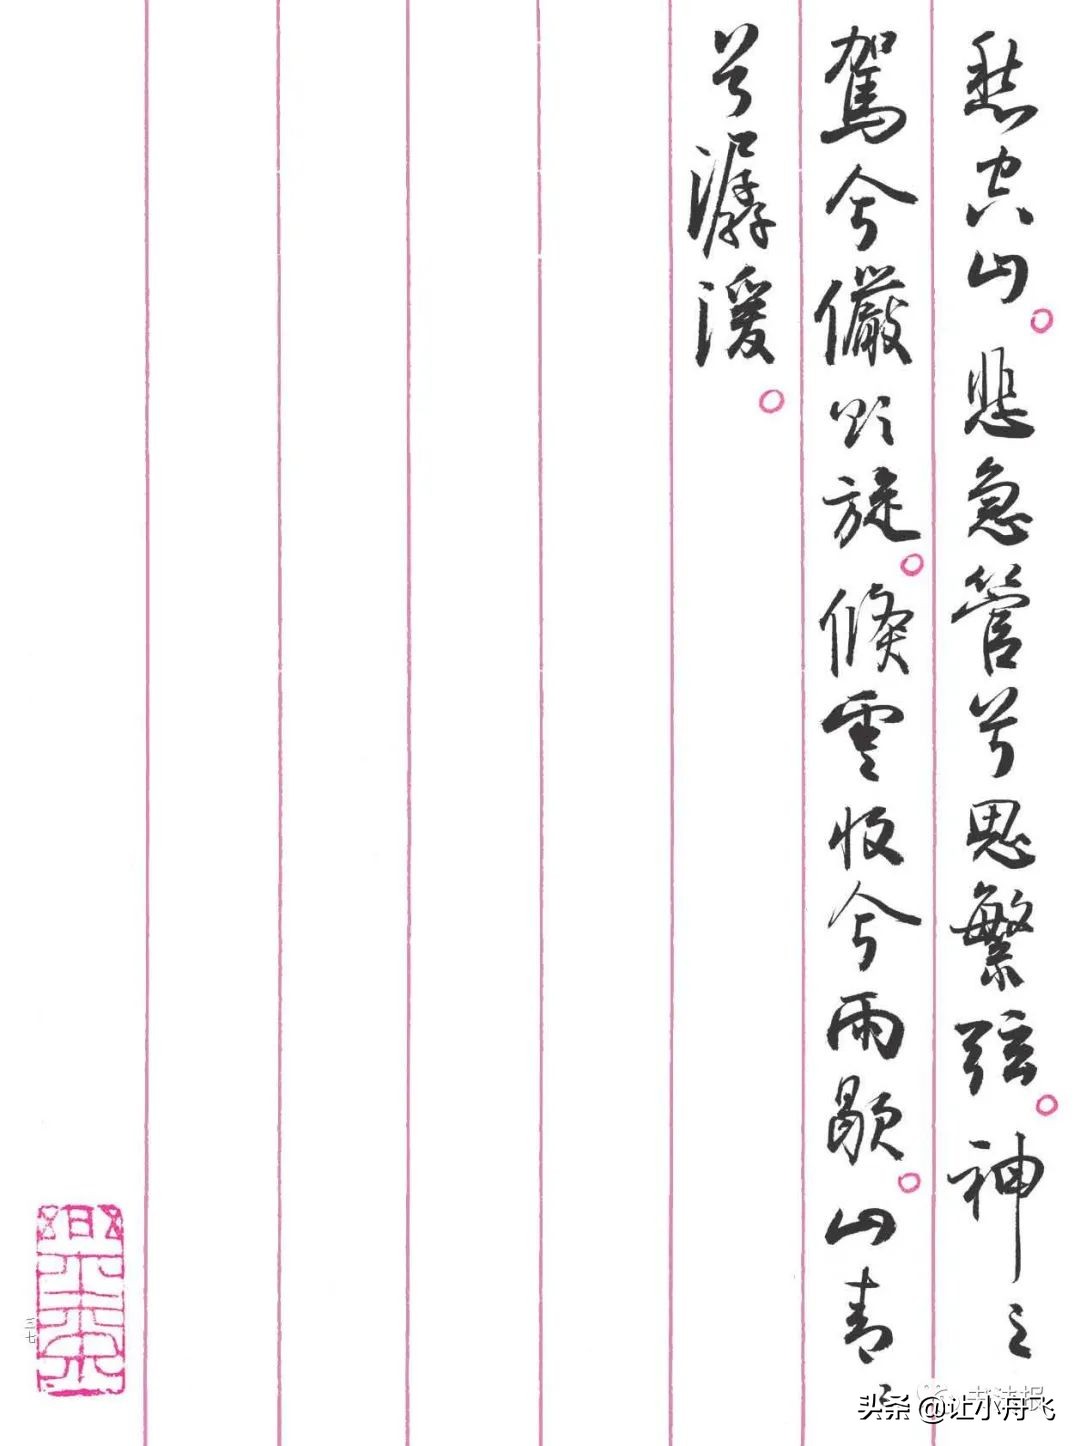 愁空山。悲急管兮思繁弦。神之
駕兮儼欲旋。倏雲收兮雨歇。山青〻
兮潺湲。
三七
书法报
头条 @让小丹飞